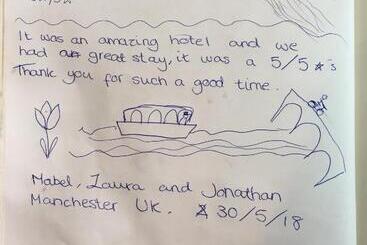 It was an amazing hotel and we
had a great stay, it was a 5/5 ☆'s
Thank you for such a good time.
Mabel, Laura and Jonathan
Manchester UK. 30/5/18